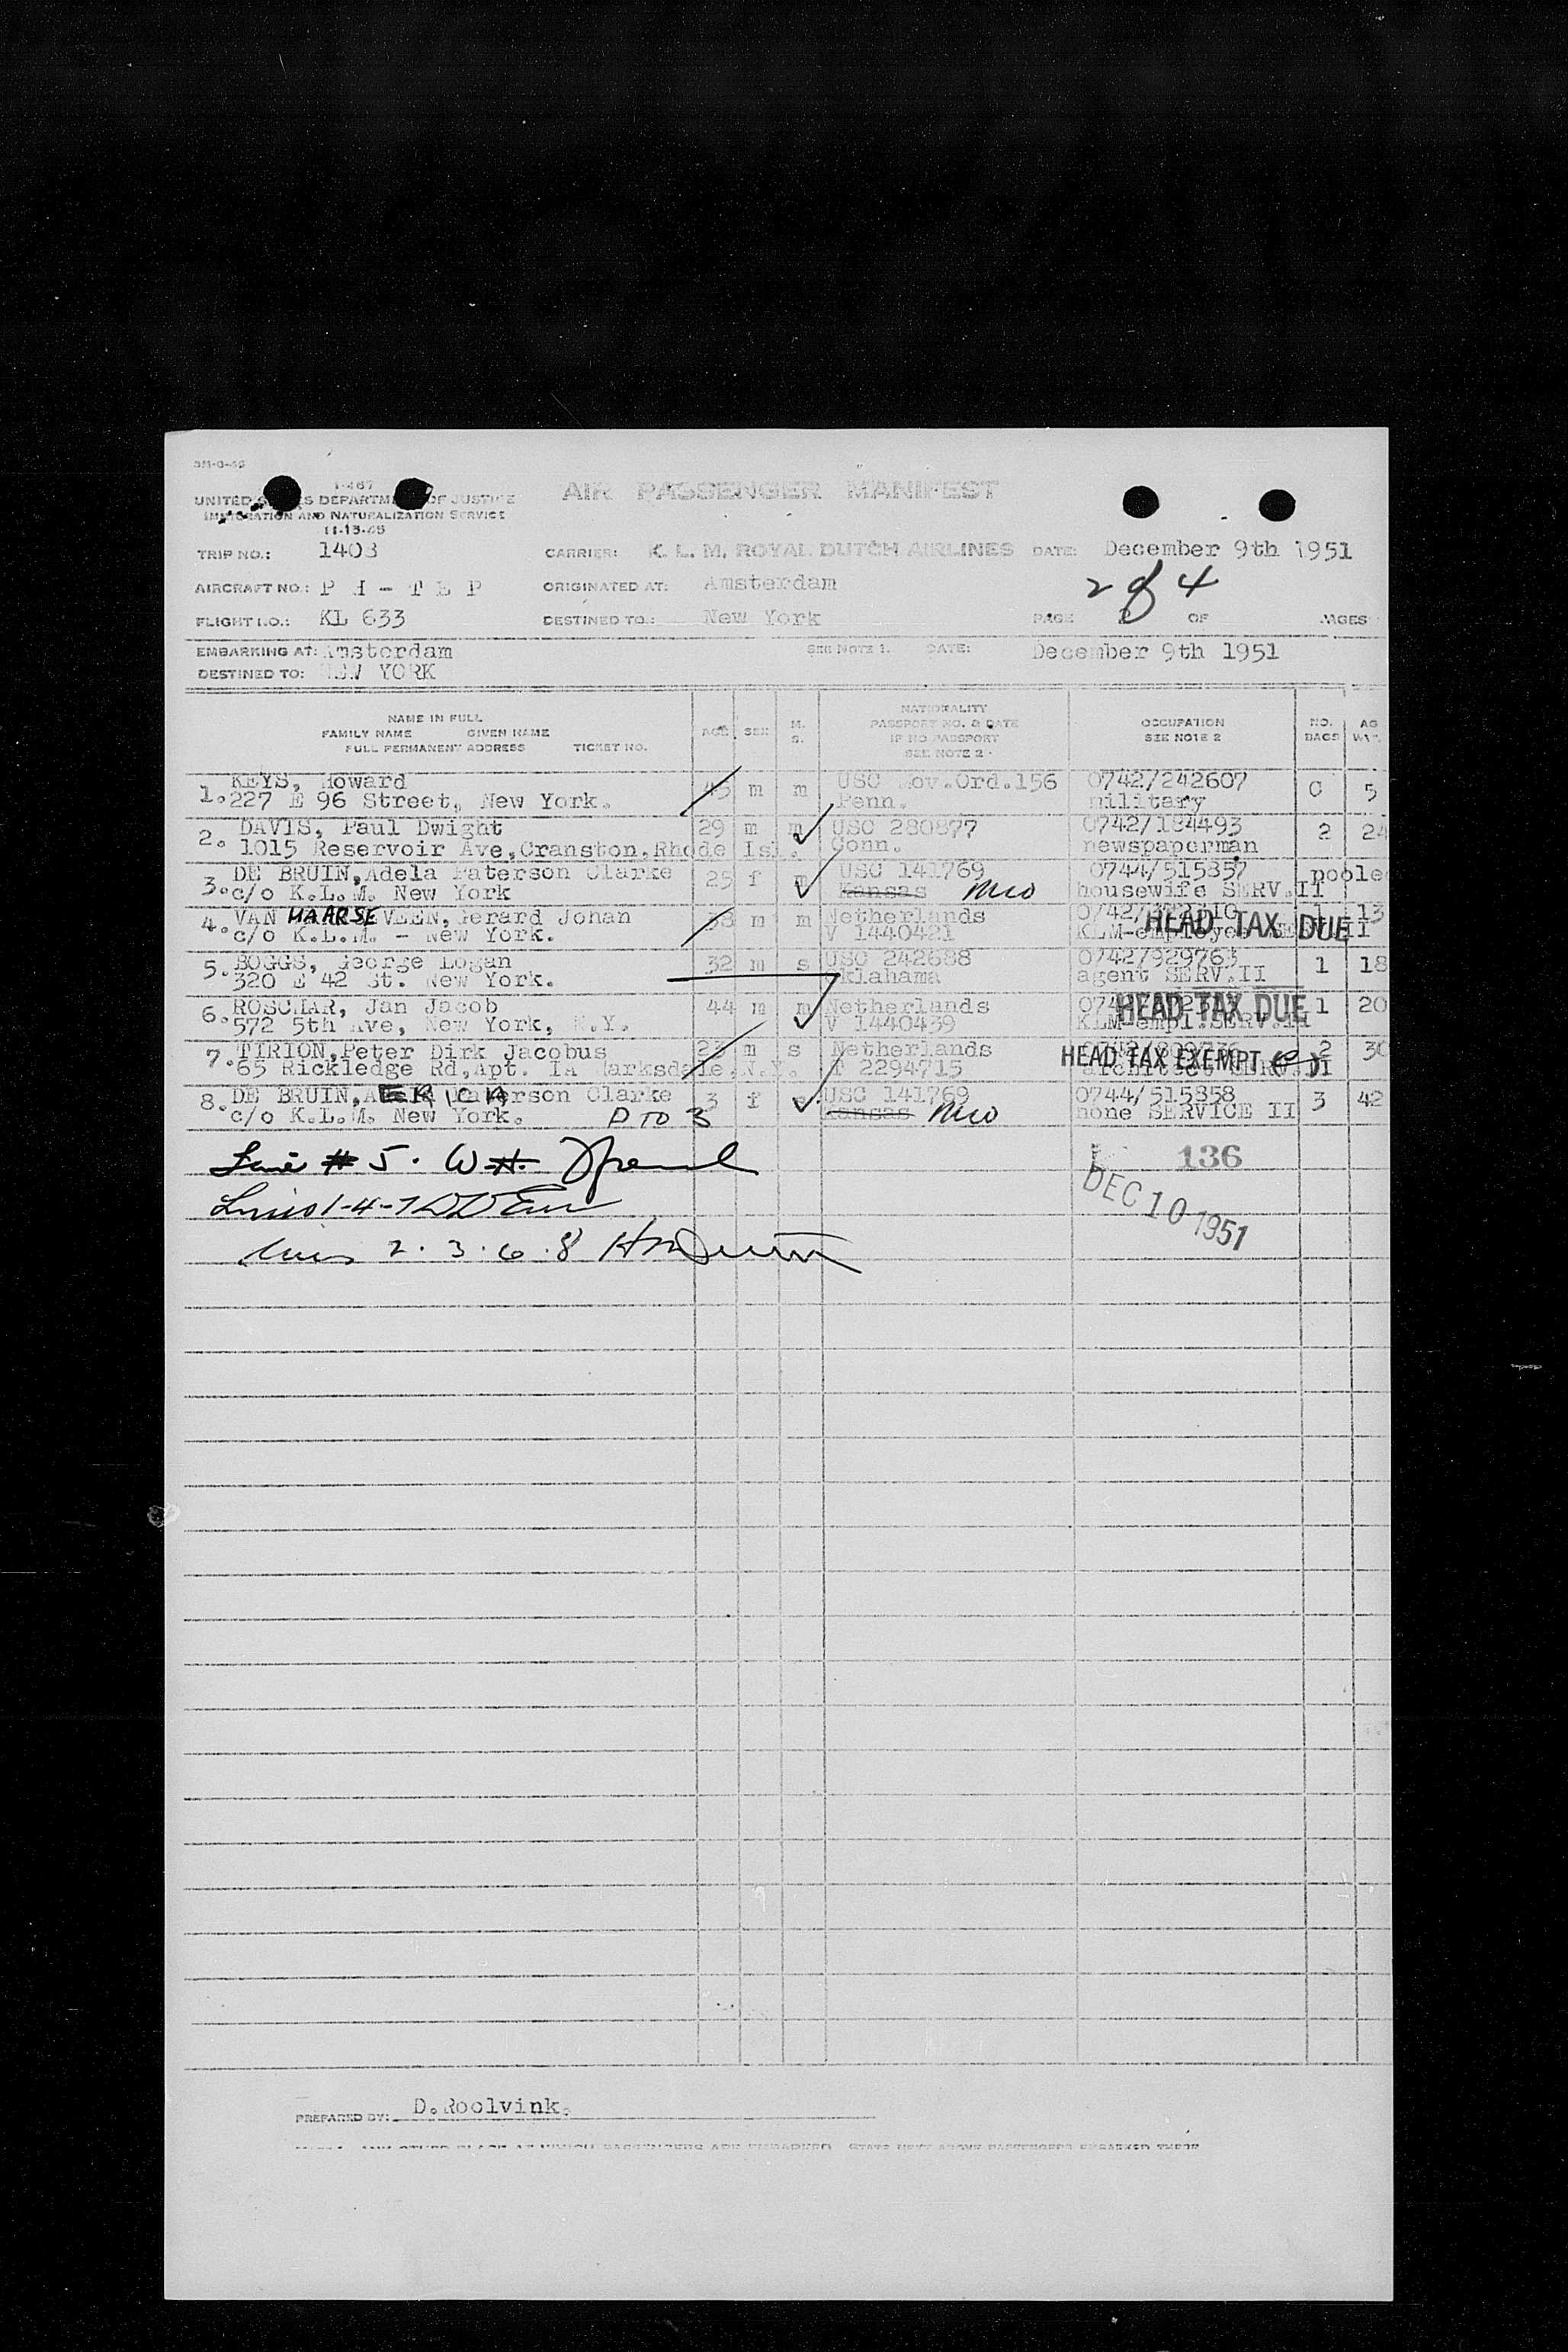 3M-8-46
I-467
UNITED STATES DEPARTMENT OF JUSTICE
IMMIGRATION AND NATURALIZATION SERVICE
11-13-45
AIR PASSENGER MANIFEST
TRIP NO.: 1403 CARRIER: K. L. M. ROYAL DUTCH AIRLINES DATE: December 9th 1951
AIRCRAFT NO.: P H - T E P ORIGINATED AT: Amsterdam 2 of 4
FLIGHT NO.: KL 633 DESTINED TO.: New York PAGE 2 OF PAGES
EMBARKING AT: Amsterdam SEE NOTE 1. DATE: December 9th 1951
DESTINED TO: NEW YORK
NAME IN FULL
FAMILY NAME GIVEN NAME
FULL PERMANENT ADDRESS TICKET NO.
AGE SEX M. S.
NATIONALITY
PASSPORT NO. & DATE
IF NO PASSPORT
SEE NOTE 2
OCCUPATION
SEE NOTE 2
NO. BAGS
1. KEYS, Howard 45 m m USC Mov.Ord.156 0742/242607 0 5
227 E 96 Street, New York. Penn. military
2. DAVIS, Paul Dwight 29 m m USC 280877 0742/184493 2 24
1015 Reservoir Ave,Cranston,Rhode Isl. Conn. newspaperman
3. DE BRUIN,Adela Paterson Clarke 25 f m USC 141769 0744/515857 pooled
c/o K.L.M. New York Kansas housewife SERV.II
4. VAN HAARSEVEEN,Gerard Johan 38 m m Netherlands 1 13
c/o K.L.M. - New York. V 1440421 KLM-employee HEAD TAX DUE
5. BOGGS, George Logan 32 m s USC 242688 0742/929763 1 18
320 E 42 St. New York. Oklahama agent SERV.II
6. ROSCHAR, Jan Jacob 44 m m Netherlands HEAD TAX DUE 1 20
572 5th Ave, New York, N.Y. V 1440439 KLM-empl.SERV.II
7. TIRION,Peter Dirk Jacobus 23 m s Netherlands 2 30
65 Rickledge Rd,Apt. 1A Harksdale,N.Y. T 2294715 architect HEAD TAX EXEMPT
8. DE BRUIN, ERICA Paterson Clarke 3 f s USC 141769 0744/515858 3 42
c/o K.L.M. New York. D TO 3 Kansas none SERVICE II
Line # 5. W.H.
136
DEC 10 1951
Lines 1-4-7
Lines 2. 3. 6. 8
PREPARED BY: D.Roolvink.